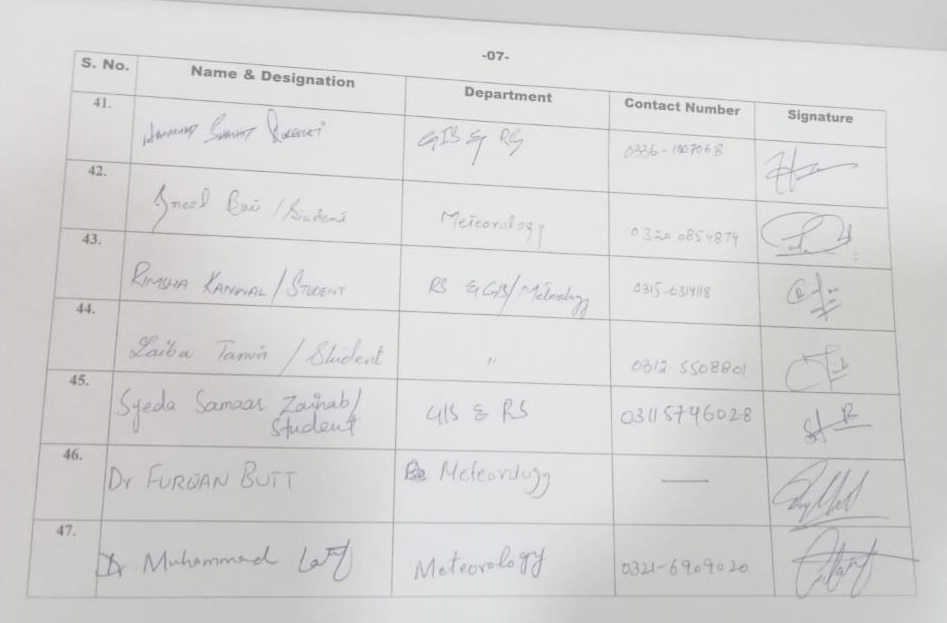 -07-
S. No. Name & Designation Department Contact Number Signature
41. Hammad Qureshi GIS & RS 0336-1007068
42. / Student Meteorology 0320 0854874
43. RIMSHA KANWAL / STUDENT RS & GIS/Meteorology 0315-6314118
44. Laiba / Student " 0312-5508801
45. Syeda Samaar Zainab/ GIS & RS 03115746028
Student
46. Dr FURQAN BUTT Meteorology —
47. Dr Muhammad Latif Meteorology 0321-6909020